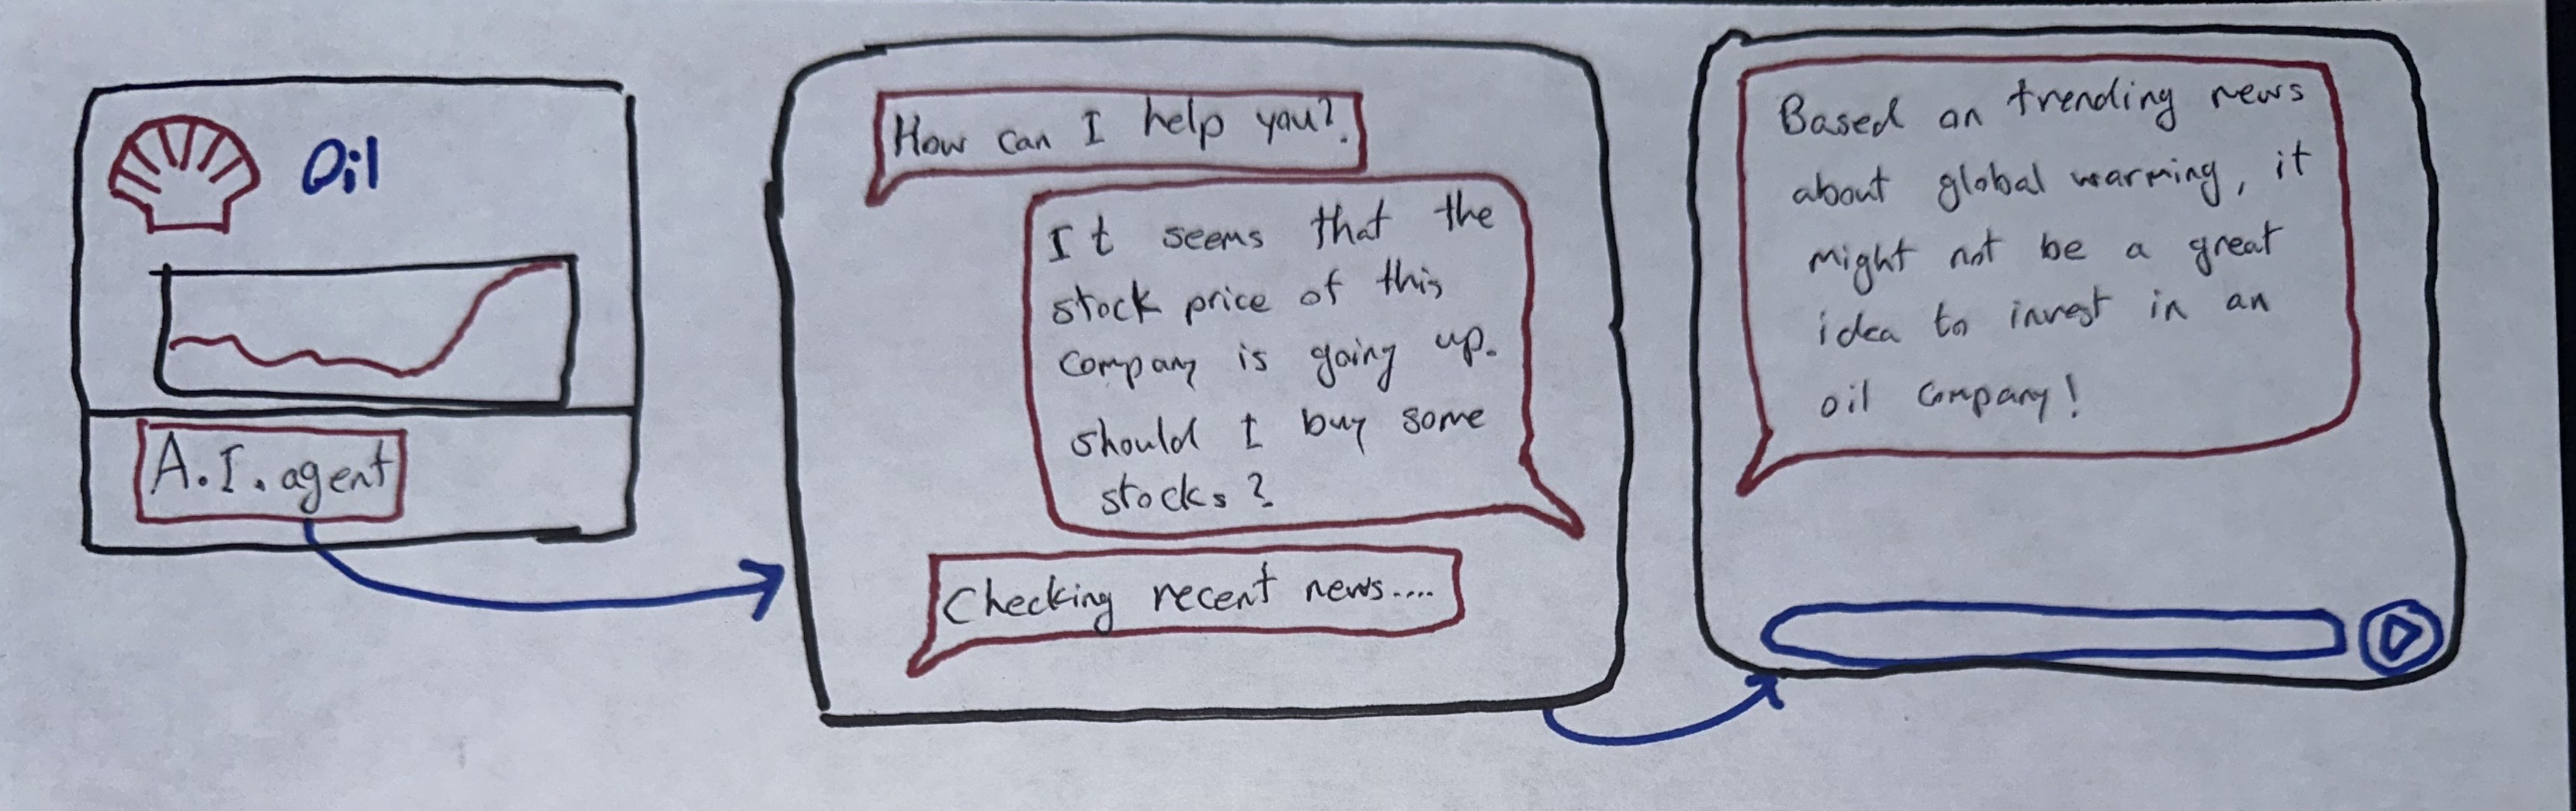 Oil
A.I. agent
How can I help you?
It seems that the
stock price of this
company is going up.
should I buy some
stocks?
Checking recent news....
Based on trending news
about global warming, it
might not be a great
idea to invest in an
oil company!